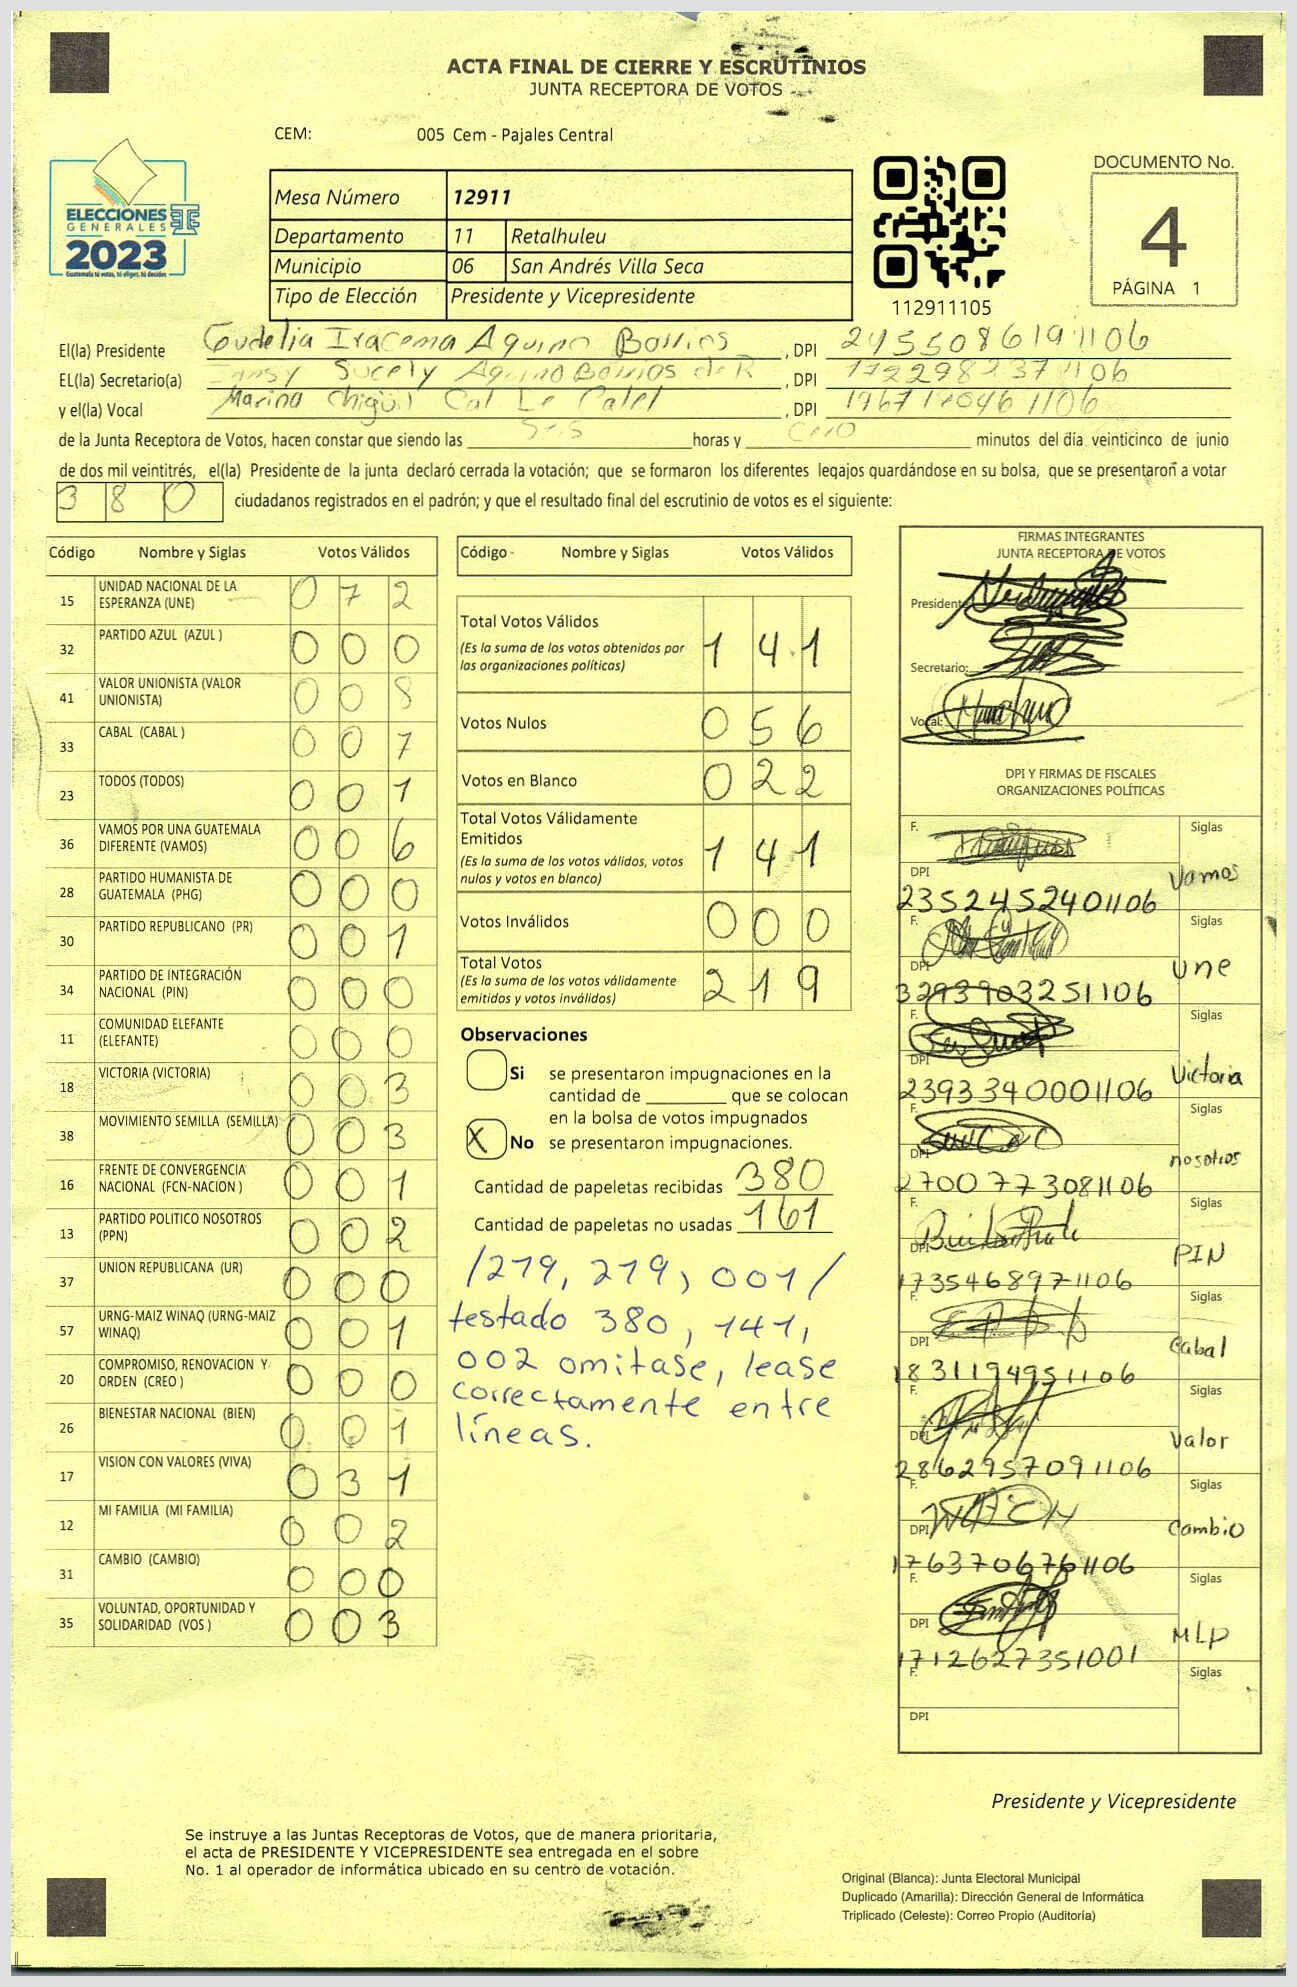 ACTA FINAL DE CIERRE Y ESCRUTINIOS
JUNTA RECEPTORA DE VOTOS
CEM: 005 Cem - Pajales Central
ELECCIONES
GENERALES
2023
Guatemala tú votas, tú eliges, tú decides
Mesa Número 12911
Departamento 11 Retalhuleu
Municipio 06 San Andrés Villa Seca
Tipo de Elección Presidente y Vicepresidente
112911105
DOCUMENTO No.
4
PÁGINA 1
El(la) Presidente Eudelia Iracema Aquino Barrios, DPI 2455086191106
EL(la) Secretario(a) Sucely Aquino Barrios de R, DPI
y el(la) Vocal Marina Cal, DPI
de la Junta Receptora de Votos, hacen constar que siendo las Seis horas y Cero minutos del día veinticinco de junio
de dos mil veintitrés, el(la) Presidente de la junta declaró cerrada la votación; que se formaron los diferentes legajos guardándose en su bolsa, que se presentaron a votar
380 ciudadanos registrados en el padrón; y que el resultado final del escrutinio de votos es el siguiente:
Código Nombre y Siglas Votos Válidos
15 UNIDAD NACIONAL DE LA ESPERANZA (UNE) 072
32 PARTIDO AZUL (AZUL ) 000
41 VALOR UNIONISTA (VALOR UNIONISTA) 008
33 CABAL (CABAL ) 007
23 TODOS (TODOS) 001
36 VAMOS POR UNA GUATEMALA DIFERENTE (VAMOS) 006
28 PARTIDO HUMANISTA DE GUATEMALA (PHG) 000
30 PARTIDO REPUBLICANO (PR) 001
34 PARTIDO DE INTEGRACIÓN NACIONAL (PIN) 000
11 COMUNIDAD ELEFANTE (ELEFANTE) 000
18 VICTORIA (VICTORIA) 003
38 MOVIMIENTO SEMILLA (SEMILLA) 003
16 FRENTE DE CONVERGENCIA NACIONAL (FCN-NACION ) 001
13 PARTIDO POLITICO NOSOTROS (PPN) 002
37 UNION REPUBLICANA (UR) 000
57 URNG-MAIZ WINAQ (URNG-MAIZ WINAQ) 001
20 COMPROMISO, RENOVACION Y ORDEN (CREO ) 000
26 BIENESTAR NACIONAL (BIEN) 001
17 VISION CON VALORES (VIVA) 031
12 MI FAMILIA (MI FAMILIA) 002
31 CAMBIO (CAMBIO) 000
35 VOLUNTAD, OPORTUNIDAD Y SOLIDARIDAD (VOS ) 003
Código Nombre y Siglas Votos Válidos
Total Votos Válidos 141
(Es la suma de los votos obtenidos por
las organizaciones políticas)
Votos Nulos 056
Votos en Blanco 022
Total Votos Válidamente
Emitidos 141
(Es la suma de los votos válidos, votos
nulos y votos en blanco)
Votos Inválidos 000
Total Votos 219
(Es la suma de los votos válidamente
emitidos y votos inválidos)
Observaciones
Si se presentaron impugnaciones en la
cantidad de ________ que se colocan
en la bolsa de votos impugnados
X No se presentaron impugnaciones.
Cantidad de papeletas recibidas 380
Cantidad de papeletas no usadas 161
/219, 219, 001/
testado 380, 141,
002 omitase, lease
correctamente entre
líneas.
FIRMAS INTEGRANTES
JUNTA RECEPTORA DE VOTOS
Presidente:
Secretario:
Vocal:
DPI Y FIRMAS DE FISCALES
ORGANIZACIONES POLÍTICAS
F. Siglas
DPI Vamos
2352452401106
F. Siglas
DPI Une
3293903251106
F. Siglas
DPI Victoria
2393340001106
F. Siglas
DPI nosotros
2700773081106
F. Siglas
DPI PIN
1735468971106
F. Siglas
DPI Cabal
1831194951106
F. Siglas
DPI Valor
2862957091106
F. Siglas
DPI Cambio
1763706761106
F. Siglas
DPI MLP
1712627351001
F. Siglas
DPI
Presidente y Vicepresidente
Se instruye a las Juntas Receptoras de Votos, que de manera prioritaria,
el acta de PRESIDENTE Y VICEPRESIDENTE sea entregada en el sobre
No. 1 al operador de informática ubicado en su centro de votación.
Original (Blanca): Junta Electoral Municipal
Duplicado (Amarilla): Dirección General de Informática
Triplicado (Celeste): Correo Propio (Auditoría)